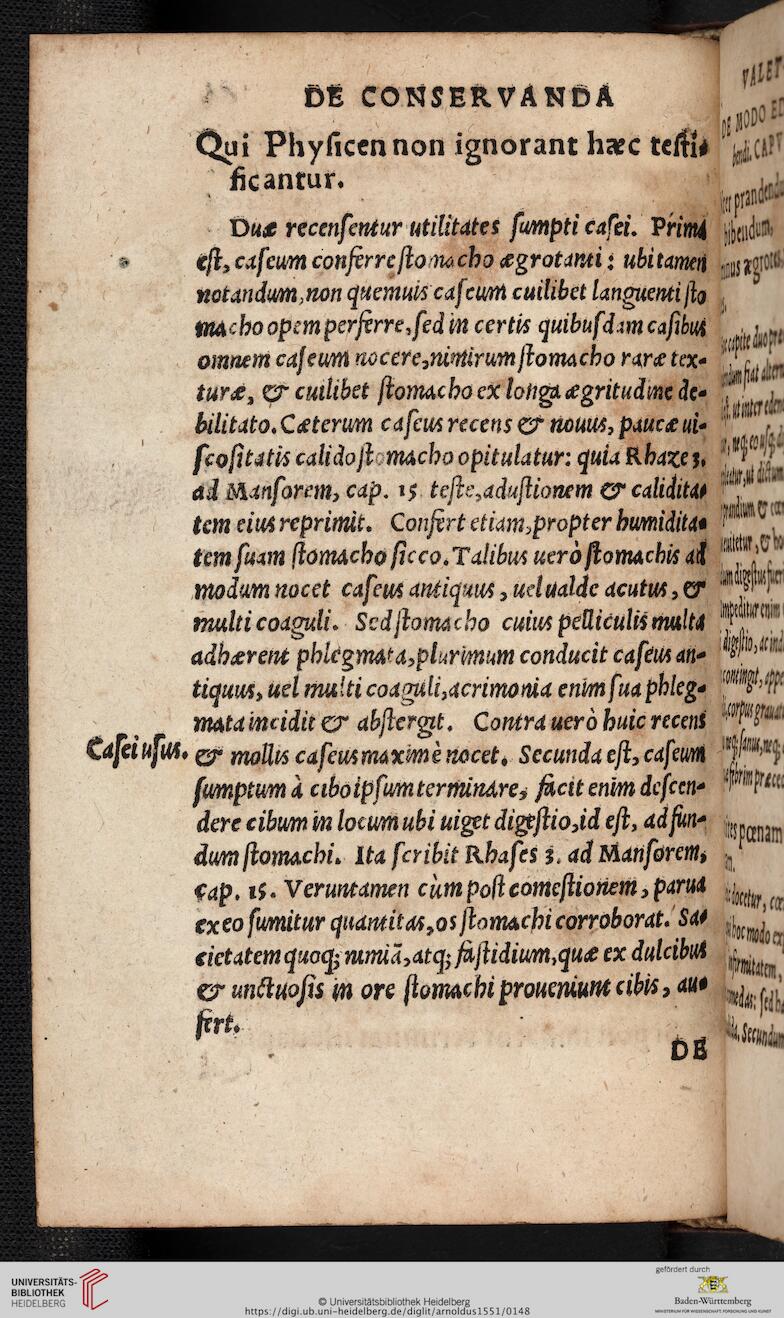 DE CONSERVANDA
Qui Physicen non ignorant hæc testi-
ficantur.
Duæ recensentur utilitates sumpti casei. Prima
est, caseum conferre stomacho ægrotanti: ubi tamen
notandum, non quemuis caseum cuilibet languenti sto
macho opem perferre, sed in certis quibusdam casibus
omnem caseum nocere, nimirum stomacho raræ tex-
turæ, & cuilibet stomacho ex longa ægritudine de-
bilitato. Cæterum caseus recens & nouus, paucæ ui-
scositatis calido stomacho opitulatur: quia Rhaze 3.
ad Mansorem, cap. 15 teste, adustionem & calidita-
tem eius reprimit. Confert etiam, propter humidita-
tem suam stomacho sicco. Talibus uerò stomachis ad
modum nocet caseus antiquus, uel ualde acutus, &
multi coaguli. Sed stomacho cuius pelliculis multa
adhærent phlegmata, plurimum conducit caseus an-
tiquus, uel multi coaguli, acrimonia enim sua phleg-
mata incidit & abstergit. Contra uerò huic recens
Casei usus.
& mollis caseus maximè nocet. Secunda est, caseum
sumptum à cibo ipsum terminare, facit enim descen-
dere cibum in locum ubi uiget digestio, id est, ad fun-
dum stomachi. Ita scribit Rhases 3. ad Mansorem,
cap. 15. Veruntamen cùm post comestionem, parua
ex eo sumitur quantitas, os stomachi corroborat. Sa-
cietatem quoq; nimiã, atq; fastidium, quæ ex dulcibus
& unctuosis in ore stomachi proueniunt cibis, au-
fert.
DE
UNIVERSITÄTS-
BIBLIOTHEK
HEIDELBERG
© Universitätsbibliothek Heidelberg
https://digi.ub.uni-heidelberg.de/diglit/arnoldus1551/0148
gefördert durch
Baden-Württemberg
MINISTERIUM FÜR WISSENSCHAFT, FORSCHUNG UND KUNST